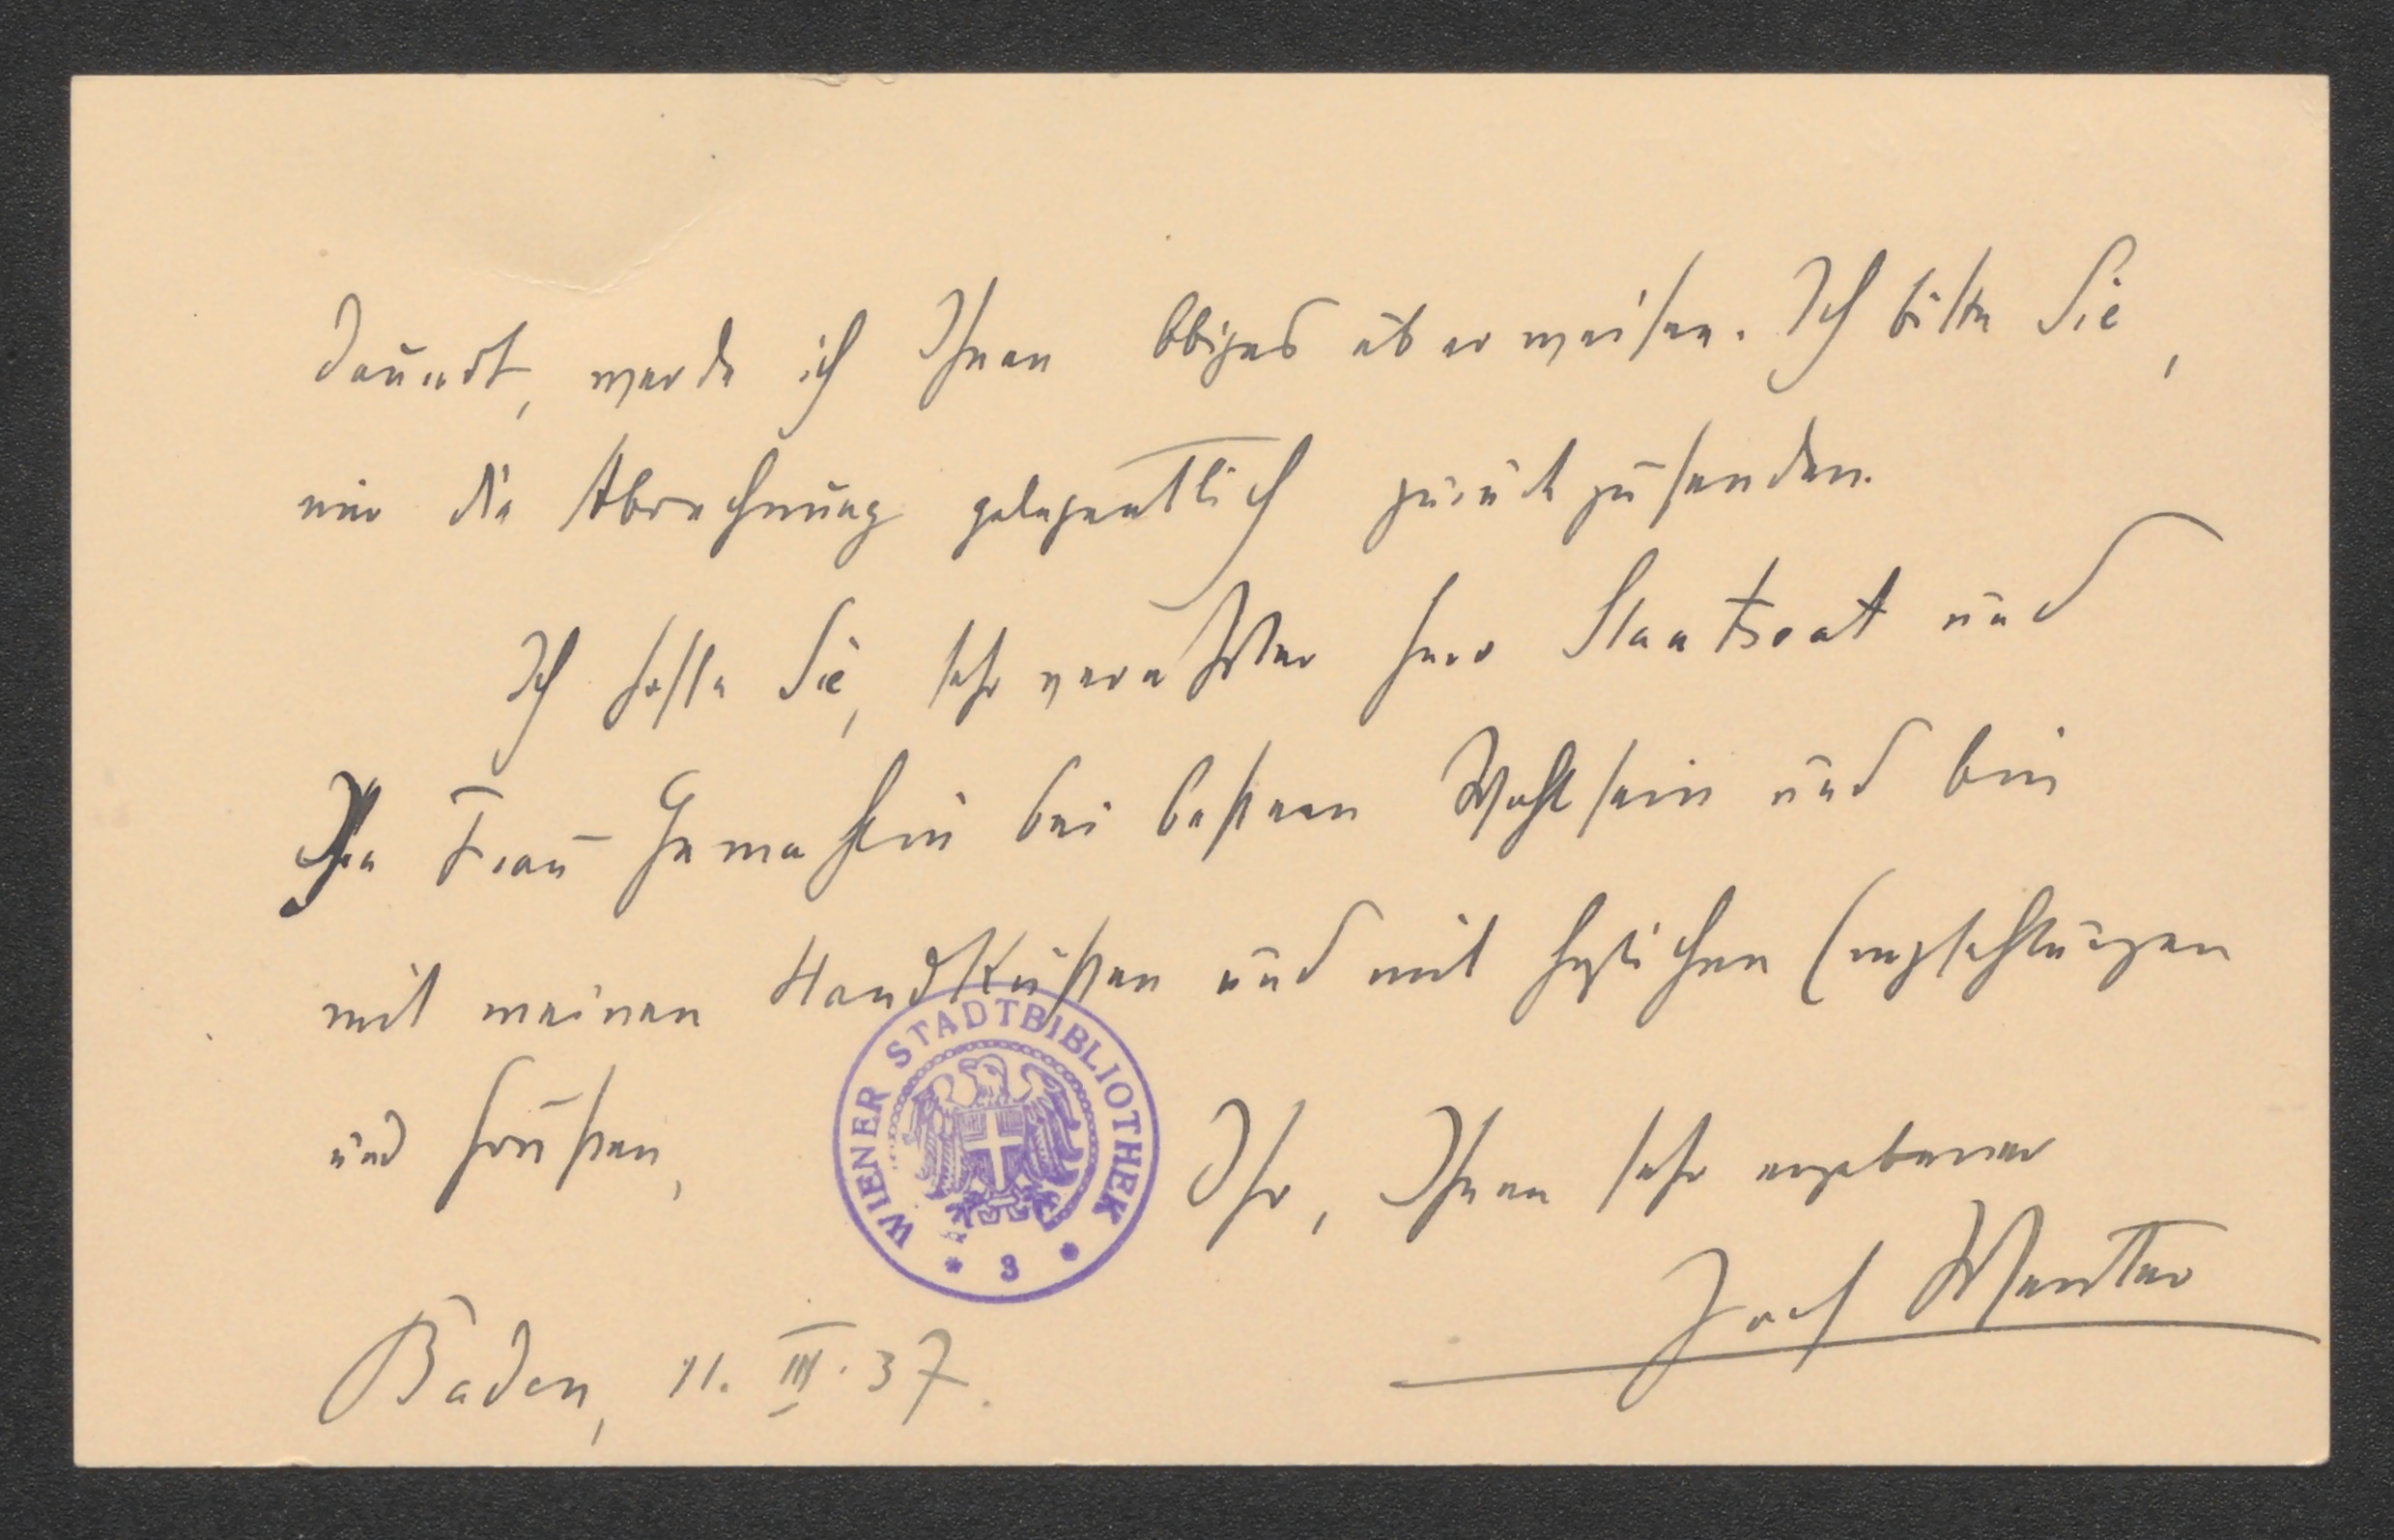 dauert, werde ich Ihnen Obiges überweisen. Ich bitte Sie,
mir die Abrechnung gelegentlich zurückzusenden.
Ich hoffe Sie, sehr verehrter Herr Staatsrat und
Ihre Frau Gemahlin bei bestem Wohlsein und bin
mit meinen Handküßen und mit herzlichen Empfehlungen
und Grüßen,
Ihr, Ihnen sehr ergebener
Josef Wenter
Baden, 11. III. 37.
WIENER STADTBIBLIOTHEK
* 3 *